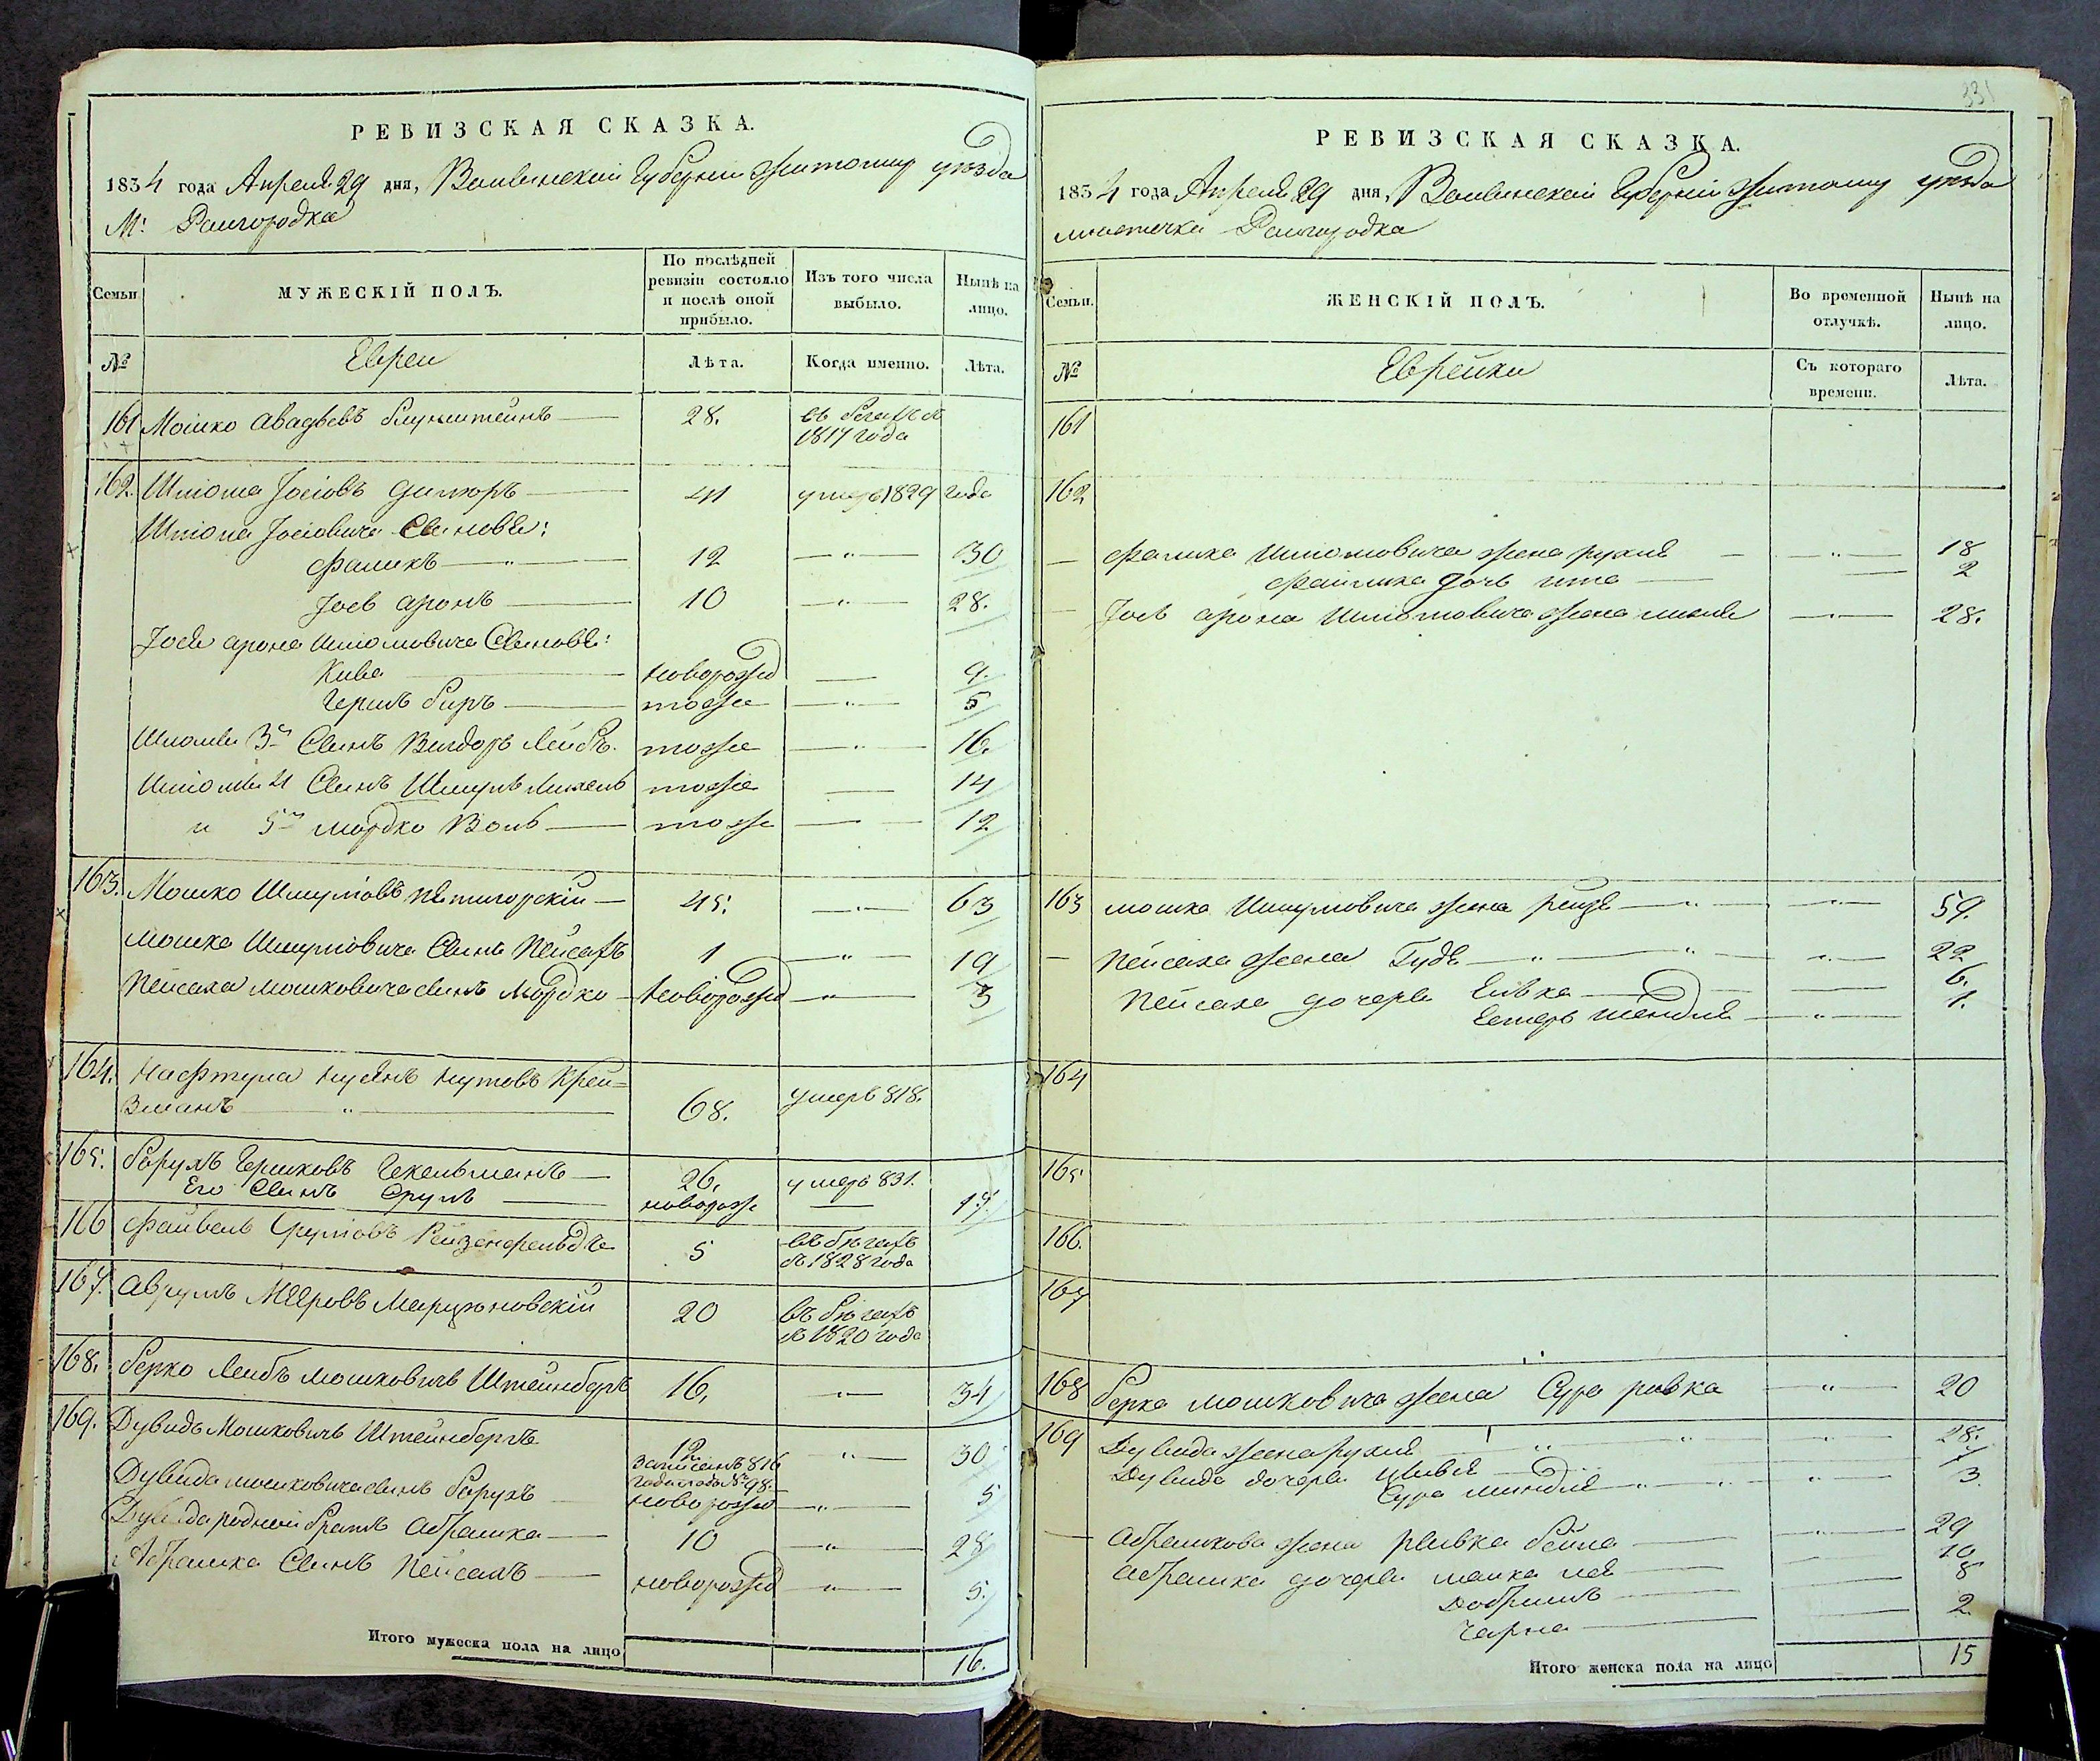 РЕВИЗСКАЯ СКАЗКА.
1834 года Апреля 29 дня, Волынской Губерніи Житомир уѣзда
М: Райгородка
Семьи.
МУЖЕСКІЙ ПОЛЪ.
По послѣдней ревизіи состояло и послѣ оной прибыло.
Изъ того числа выбыло.
Нынѣ на лицо.
№
Евреи
Лѣта.
Когда именно.
Лѣта.
161 Мошко Авадьевъ 28. въ бегахъ съ
1817 года
162. Шліома Іосіовъ 41 умеръ 1829 года
Шліома Іосіовича Сыновья:
Фаликъ 12 30
Іось Аронъ 10 28.
Іося Арона Шліомовича Сыновья:
Кива новорожд 9.
Герш Беръ тоже 5
Шліомы 3й Сынъ Вигдоръ Лейбъ. тоже 16.
Шліомы 4 Сынъ Шмуль тоже 14
и 5й Мордко Воль тоже 12
163. Мошко Шмуліовъ Пятигорскій 45. 63
Мошка Шмуліовича Сынъ Пейсахъ 1 19
Пейсаха Мошковича сынъ Мордко новорожд 3
164. Нафтула Нусынъ Нутовъ Крей=
Зманъ 68. умеръ 818.
165. Борухъ Гершковъ Гекельманъ 26, умеръ 831.
Его Сынъ Сруль новорож 17
166 Файвель Сруліовъ 5 въ бѣгахъ
съ 1828 года
167. Аврумъ Мееровъ 20 въ бѣгахъ
съ 1820 года
168. Берко Лейбъ Мошковичъ Штейнбергъ 16, 34
169. Дувидъ Мошковичъ Штейнбергъ 12 30
записанъ 816
года подъ № 98.
Дувида Мошковича сынъ Борухъ новорожд 5
Дувида родной братъ Абрашка 10 28
Абрашка Сынъ Пейсахъ новорожд 5.
Итого мужеска пола на лицо 16.
331
РЕВИЗСКАЯ СКАЗКА.
1834 года Апреля 29 дня, Волынской Губерніи Житомир уѣзда
местечка Райгородка
Семьи.
ЖЕНСКІЙ ПОЛЪ.
Во временной отлучкѣ.
Нынѣ на лицо.
№
Еврейки
Съ котораго времени.
Лѣта.
161
162
Фалика Шліомовича жена Рухля 18
Фалика дочь Ита 2
Іось Арона Шліомовича жена 28.
163 Мошка Шмуліовича жена Рейзя 59.
Пейсаха жена Гудя 22
Пейсаха дочери Сивка 6.
Естеръ Шендля 1.
164
165
166.
167
168 Берка Мошковича жена Сура Ривка 20
169 Дувида жена Рухля 28.
Дувида дочери Цивья 7
Сура Миндля 3
Абрашкова жена Ривка Бейла 29
Абрашка дочери 10
Добрышъ 8
Чарна 2.
Итого женска пола на лицо 15